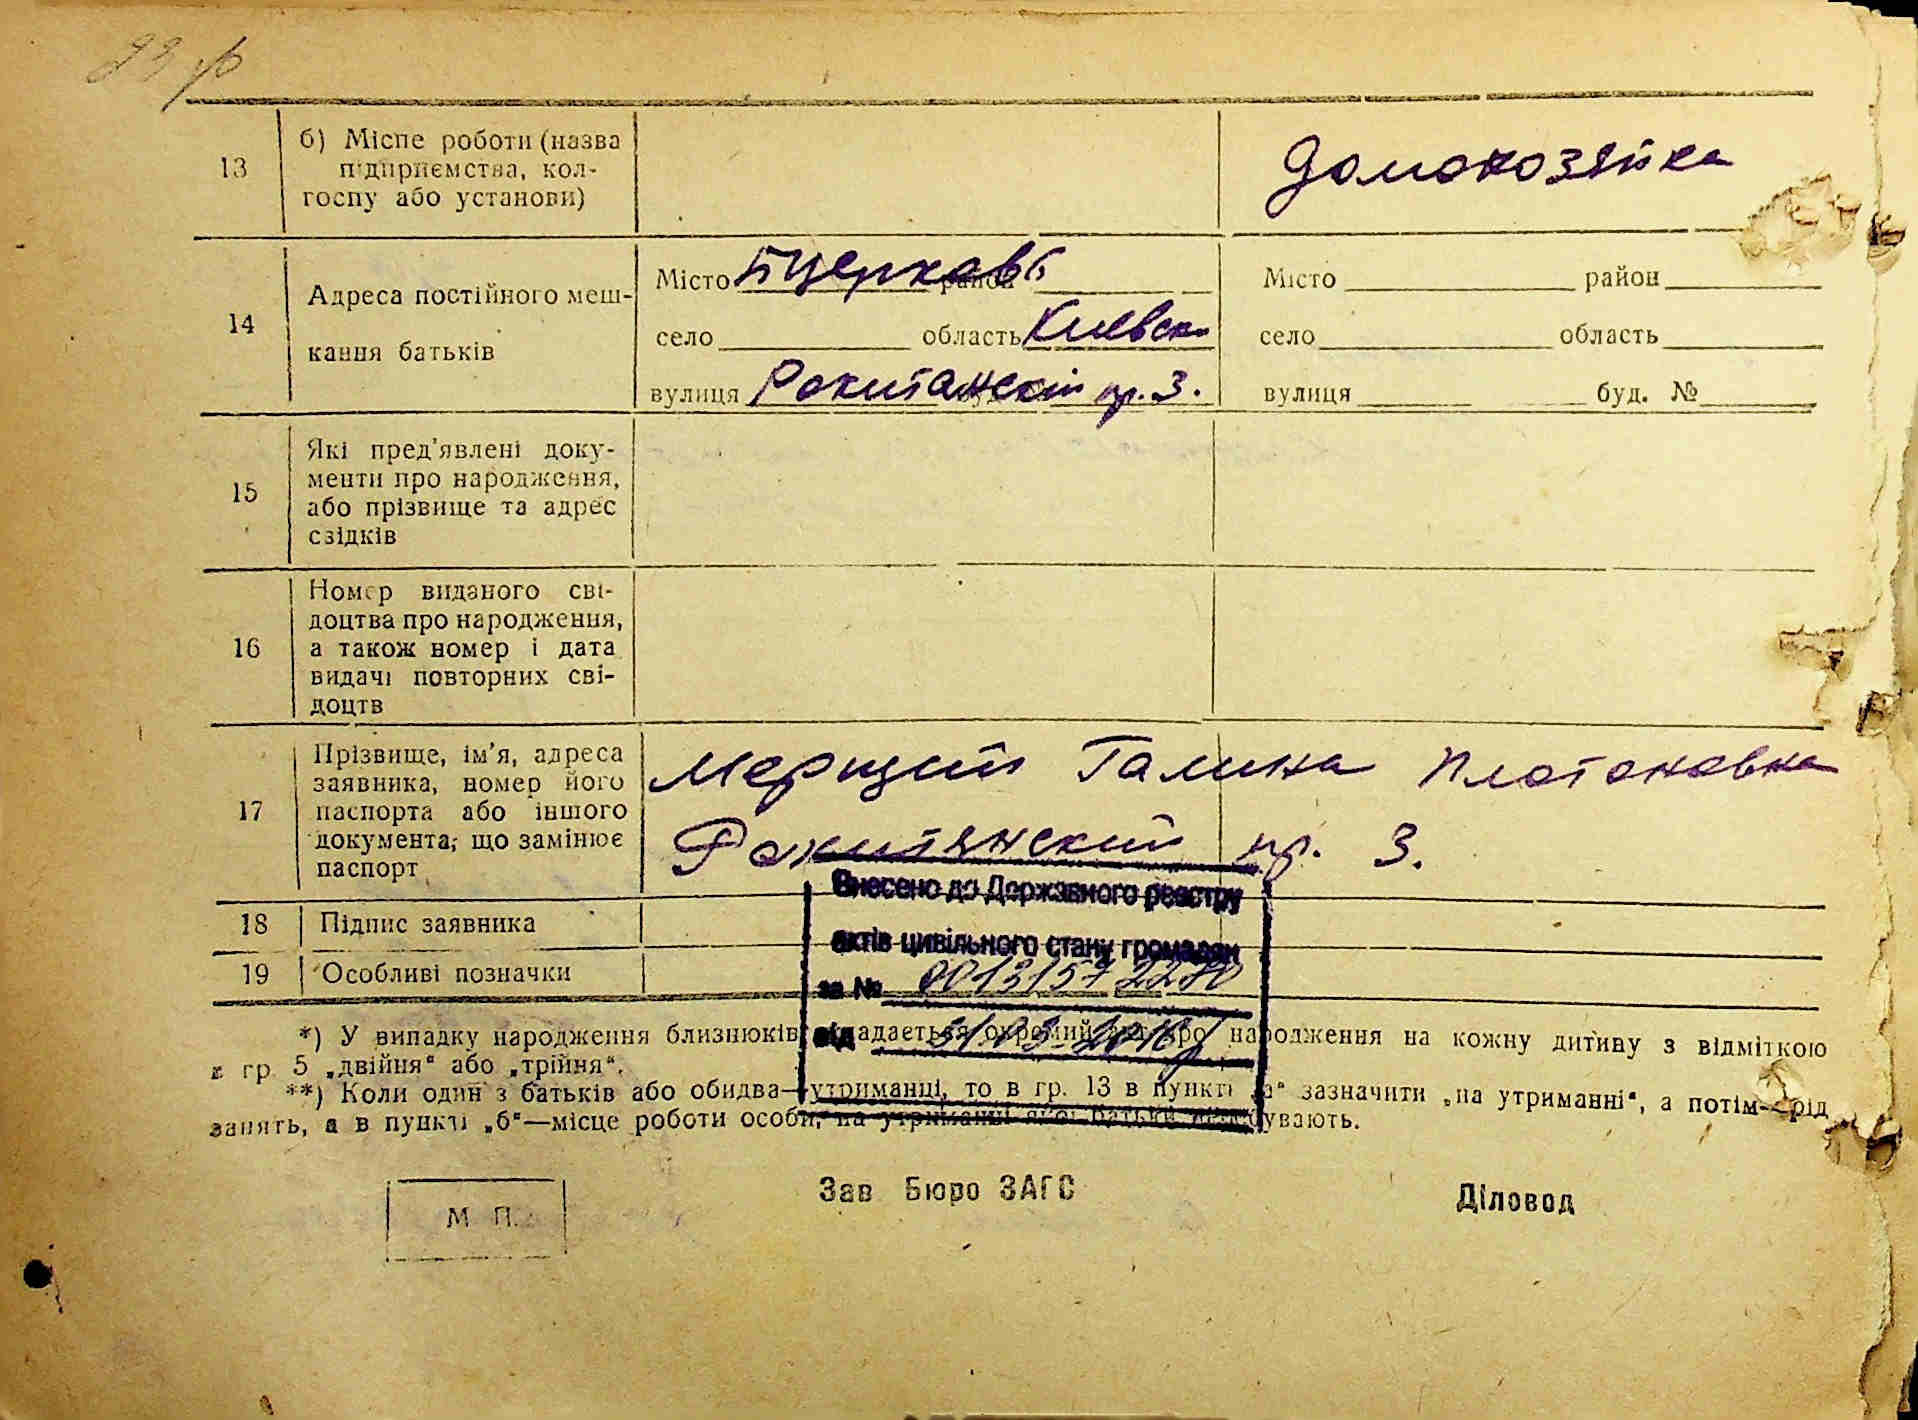 13
б) Місце роботи (назва
підприємства, кол-
госпу або установи)
Домохозяйка
14
Адреса постійного меш-
кання батьків
Місто Бцерковь район
село область Киевск
вулиця Рокитанский пр. 3.
Місто район
село область
вулиця буд. №
15
Які пред'явлені доку-
менти про народження,
або прізвище та адрес
свідків
16
Номер виданого сві-
доцтва про народження,
а також номер і дата
видачі повторних сві-
доцтв
17
Прізвище, ім'я, адреса
заявника, номер його
паспорта або іншого
документа, що замінює
паспорт
Мерщий Галина Платоновна
Рокитянский пр. 3.
18 Підпис заявника
19 Особливі позначки
Внесено до Державного реєстру
актів цивільного стану громадян
за №
від
*) У випадку народження близнюків складається окремий акт про народження на кожну дитину з відміткою
в гр. 5 „двійня“ або „трійня“.
**) Коли один з батьків або обидва—утриманці, то в гр. 13 в пункті „а“ зазначити „на утриманні“, а потім—рід
занять, а в пункті „б“—місце роботи особи, на утриманні якої батьки перебувають.
М. П.
Зав Бюро ЗАГС
Діловод